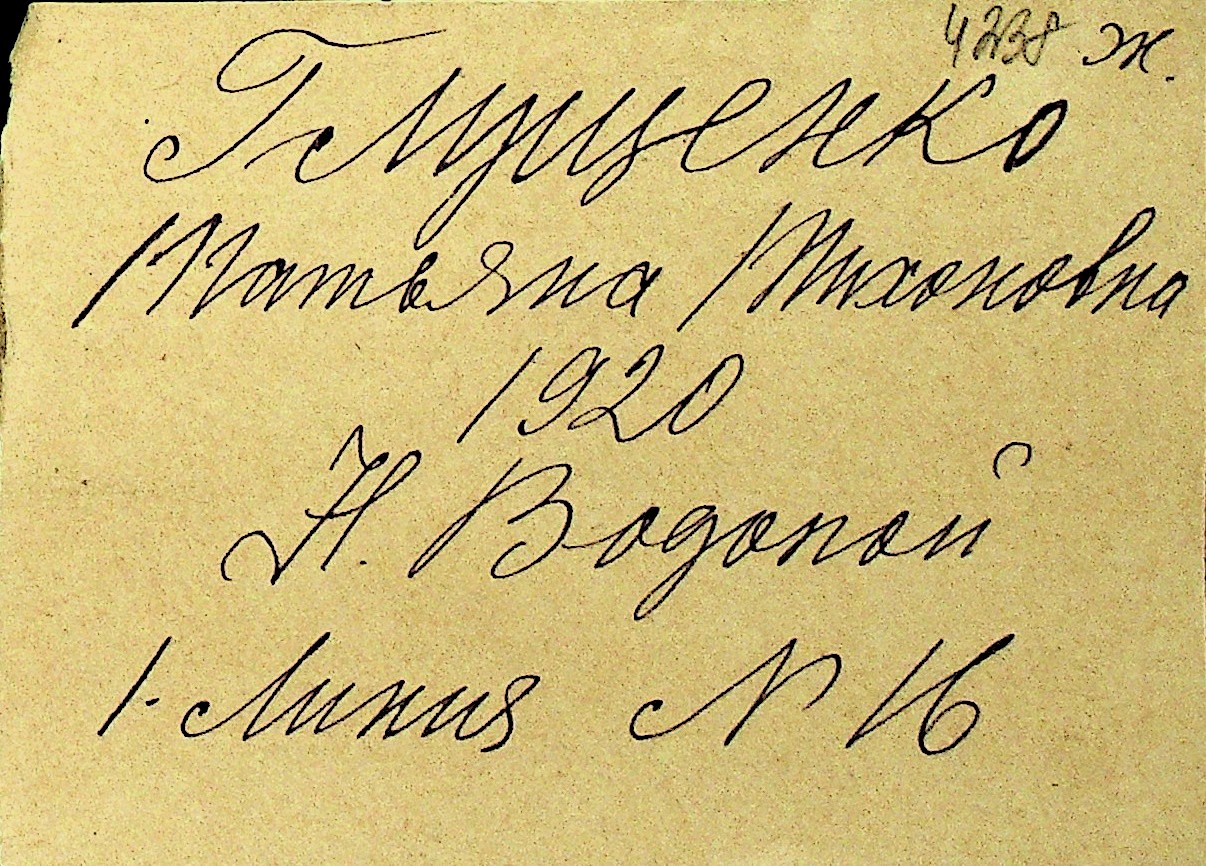 4238 ж.
Глущенко
Татьяна Тихоновна
1920
Н. Водопой
1-Линия № 16